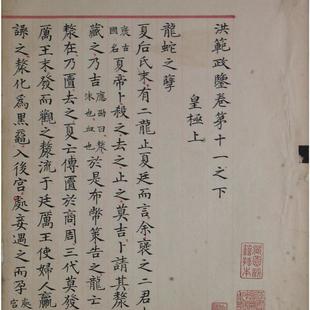 洪範政鑒卷第十一之下
皇極上
龍蛇之孽
夏后氏末有二龍止夏廷而言余褒之二君
褒古國名夏帝卜殺之去之止之莫吉卜請其漦
藏之乃吉應劭曰漦沫也血也於是布幣策告之龍亡
漦在乃匵去之夏亡傳匵於商周三代莫發
厲王末發而觀之漦流于廷厲王使婦人臝
譟之漦化為黑黿入後宮處妾遇之而孕